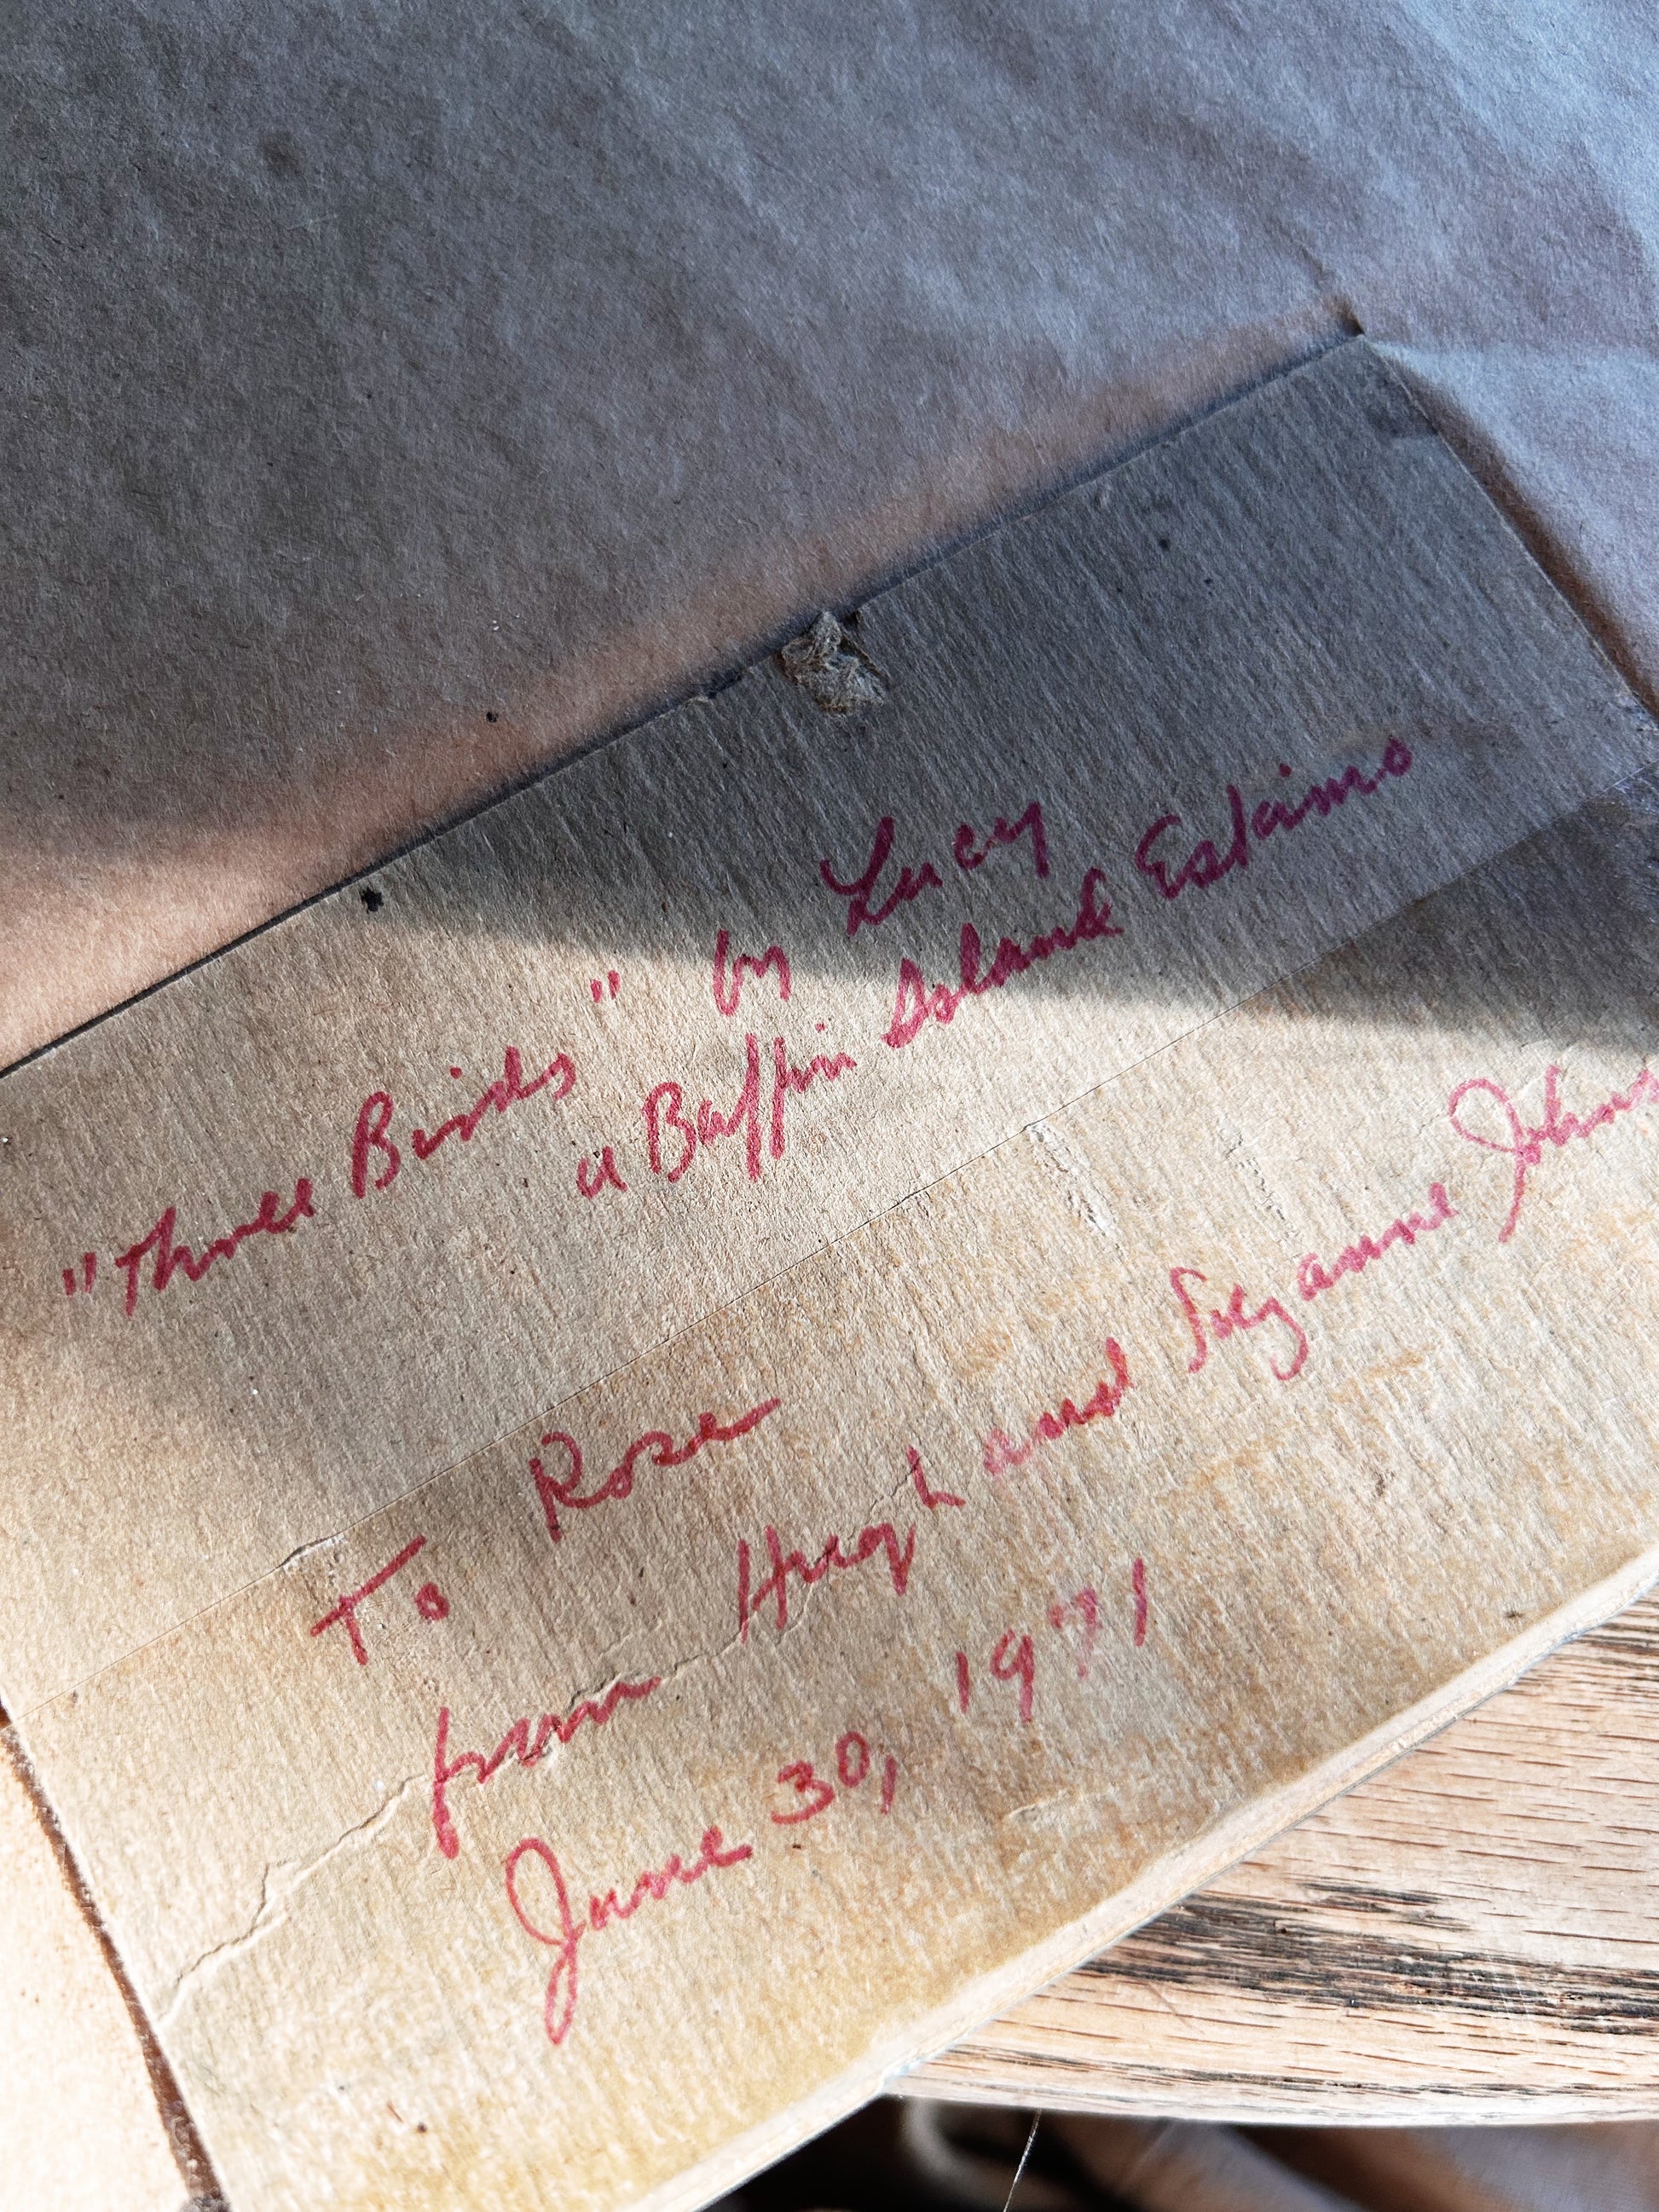 "Three Birds" by Lucy
a Baffin Island Eskimo
To Rose
from Hugh and Suzanne Johns
June 30, 1971